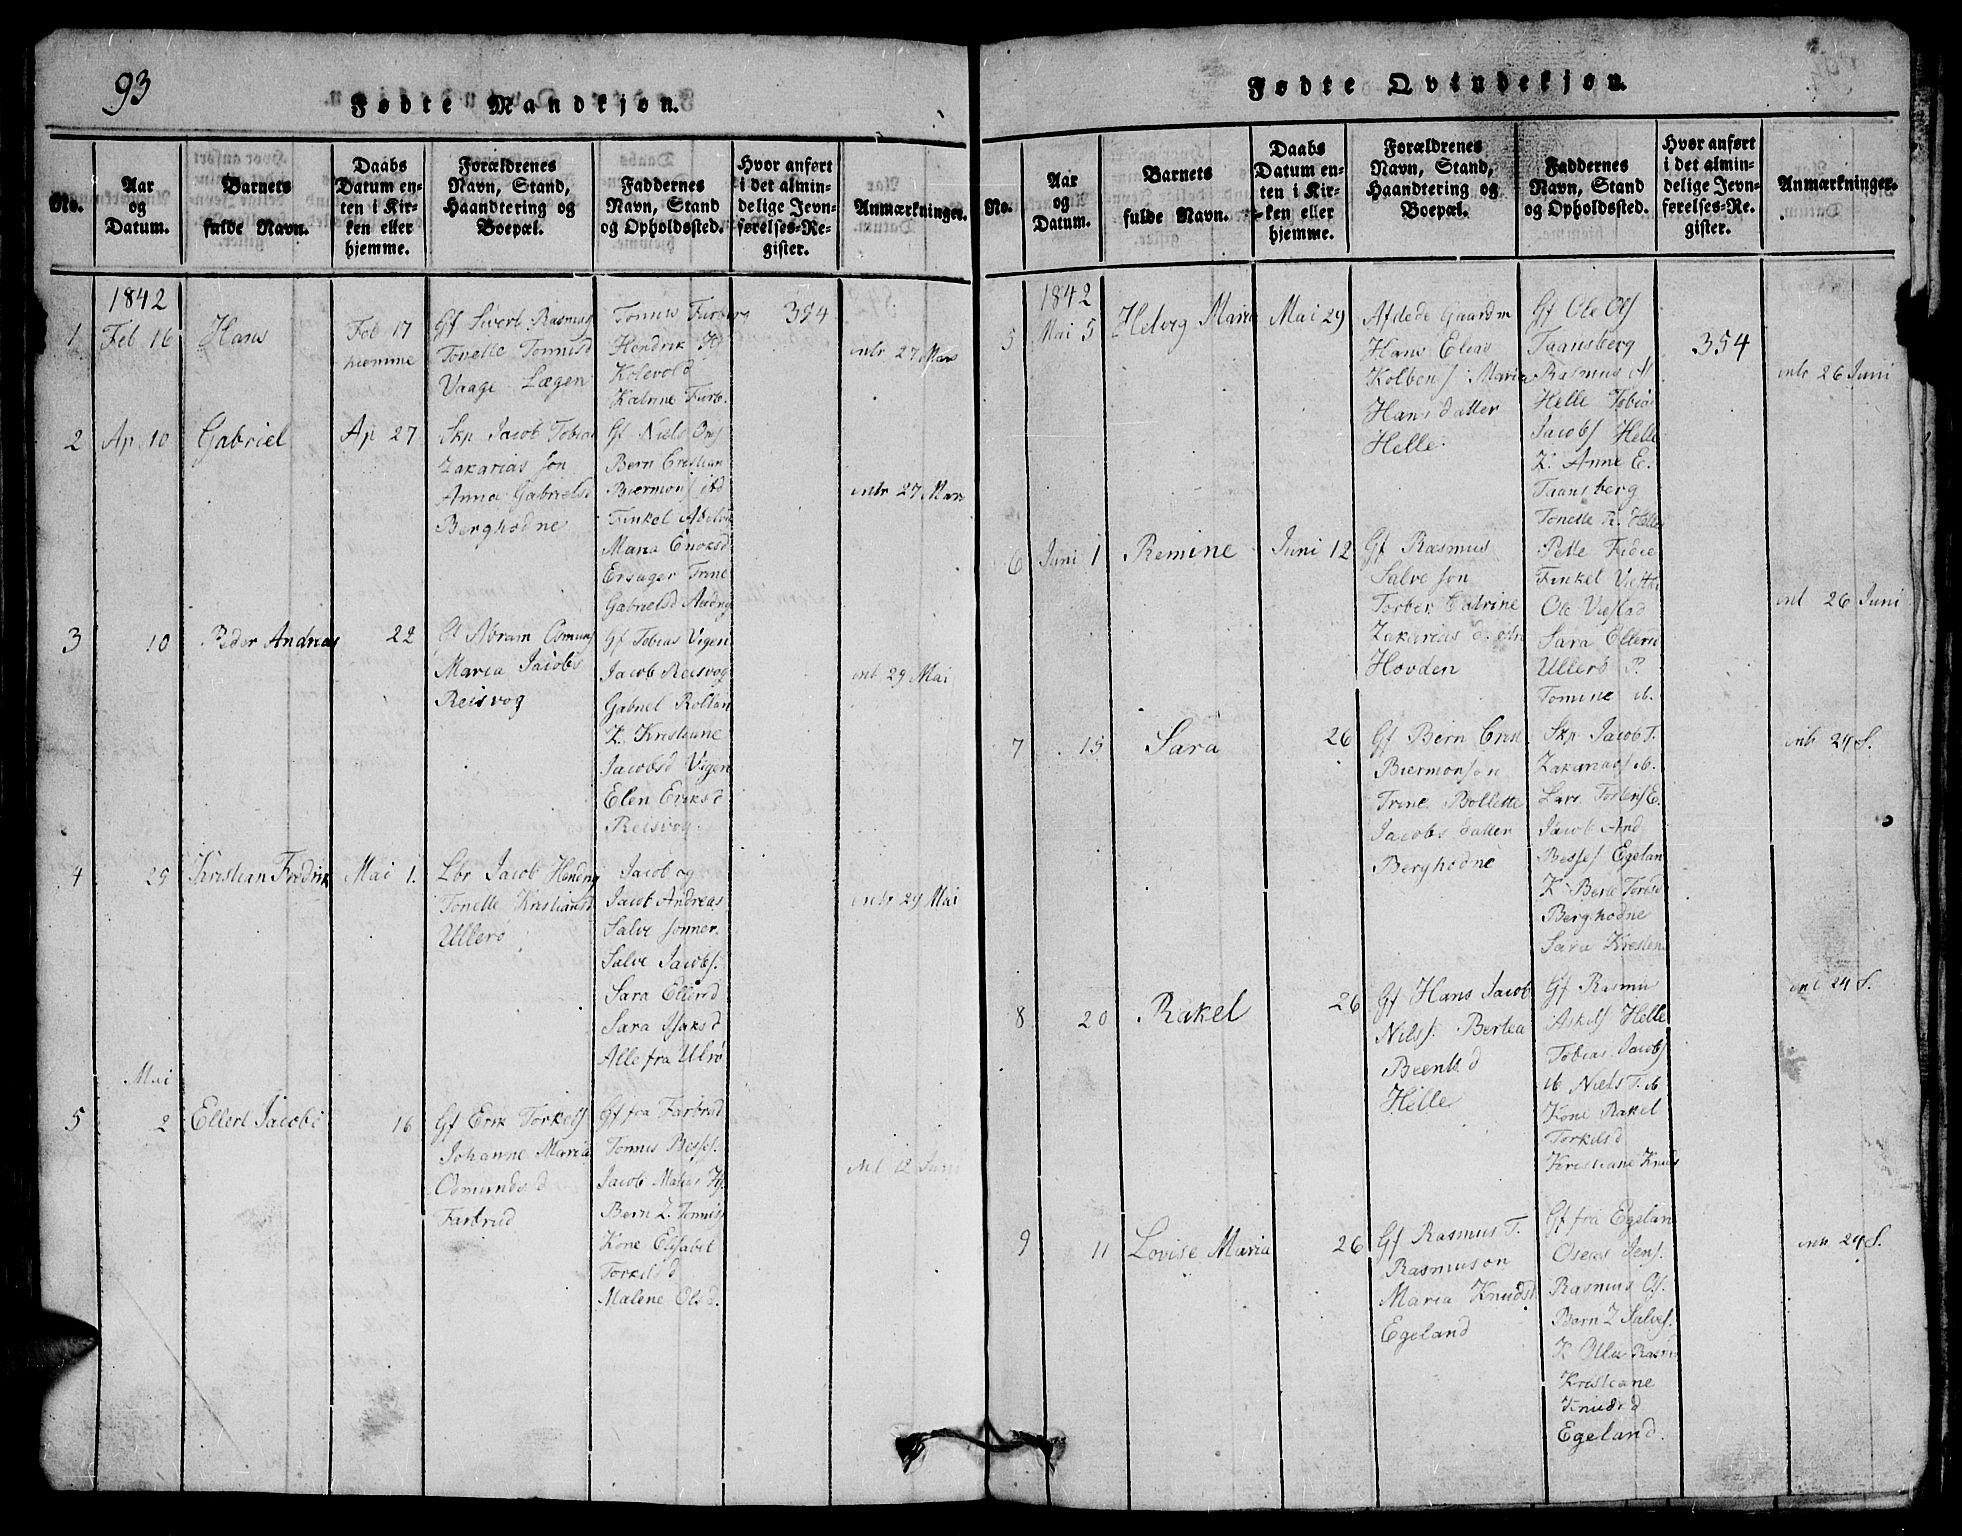 93
Fødte Mandkjøn.
No.
Aar
og
Datum.
Barnets
fulde Navn.
Daabs
Datum en-
ten i Kir-
ken eller
hjemme.
Forældrenes
Navn, Stand,
Haandtering og
Boepæl.
Faddernes
Navn, Stand
og Opholdssted.
Hvor anført
i det almin-
delige Jevn-
førelses-Re-
gister.
Anmærkninger.
1842
1
Feb 16
Hans
Feb 17
hiemme
Gf Sivert Rasmus
Tonette Tonnisd
Vaage Lægen
Tonnes Furberg
Hendrik
Kolevold
Katrine Furb.
354
intr 27 Mars
2
Ap. 10
Gabriel
Ap 27
Skp Jacob Tobias
Zakarias son
Anna Gabrielsd
Berghodne
Gf Niels
Bern Cristian
Biermons
Finkel
Maria Enoksd
Ersager Trine
Gabrielsd
intr 27 Mars
3
10
Peder Andreas
22
Gf Abram Osmuns
Maria Jacobs
Reisvog
Gf Tobias Vigen
Jacob Reisvog
Gabriel Rollan
K. Kristiane
Jacobsd Vigen
Elen Eriksd
Reisvog
int 29 Mai
4
29
Kristian Fredrik
Mai 1.
Lbr Jacob
Tonette Kristiansd
Ullerø
Jacob og
Jacob Andreas
Salve sonner.
Salve Jacobs.
Sara Ellersd
Sara Isaksd
Alle fra Ulrø
intr 29 Mai
Mai
5
2
Ellert Jacob
16
Gf Erik Torkels
Johanne Maria
Osmunds d
Farbrud
Gf fra Farbrud
Tonnis Besses.
Jacob
Bern Z. Tonnis
Kone Elisabet
Torkilsd
Malene Olsd.
int 12 Juni
Fødte Qvindekjøn.
No.
Aar
og
Datum.
Barnets
fulde Navn.
Daabs
Datum en-
ten i Kir-
ken eller
hjemme.
Forældrenes
Navn, Stand,
Haandtering og
Boepæl.
Faddernes
Navn, Stand
og Opholdssted.
Hvor anført
i det almin-
delige Jevn-
førelses-Re-
gister.
Anmærkninger.
1842
5
Mai 5
Helvig Maria
Mai 29
Afdøde Gaardm
Hans Elias
Kolbens Maria
Hans datter
Helle.
Gf Ole Ols
Taansberg
Rasmus
Helle Tobias
Jacobs Helle
K. Anne E.
Taansberg
Tonette R. Helle
354
intr 26 Juni
6
Juni 1
Remine
Juni 12
Gf Rasmus
Salve son
Torber Catrine
Zakarias
Hovden
Pelle
Finkel
Ole
Sara
Ullerø
Tomine
int 26 Juni
7
15
Sara
26
Gf Bern Cris
Biermonson
Trine Bollette
Jacobs datter
Berghodne
Skp Jacob T.
Zakarias
Lars
Jacob And
Besses Egelan
K Berte
Berghodne
Sara Kristens
intr 24 S.
8
20
Rakel
26
Gf Hans Jacob
Nilss. Bertea
Beentsd
Helle
Gf Rasmus
Askels Helle
Tobias Jacobs
ib Niels T. ib
Kone Rakel
Torkilsd
Kristiane Knuds
int 24 S.
9
11
Lovise Maria
26
Gf Rasmus T.
Rasmuson
Maria Knudsd
Egeland
Gf fra Egelan
Oseas Jens.
Rasmus Ols.
Bern Z Salves.
K Rasmus
Kristiane
Knudsd
Egeland.
intr 24 S.